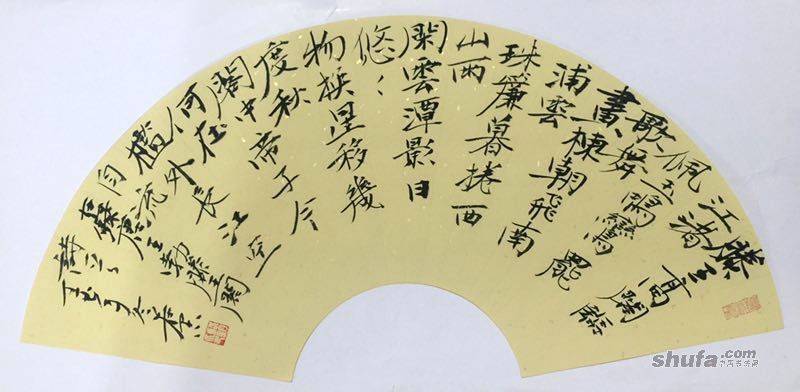 滕王高閣臨
江渚
佩玉鳴鸞罷
歌舞
畫棟朝飛南
浦雲
珠簾暮捲西
山雨
閑雲潭影日
悠〻
物換星移幾
度秋
閣中帝子今
何在
檻外長江空
自流
唐王勃滕王閣
shufa.com